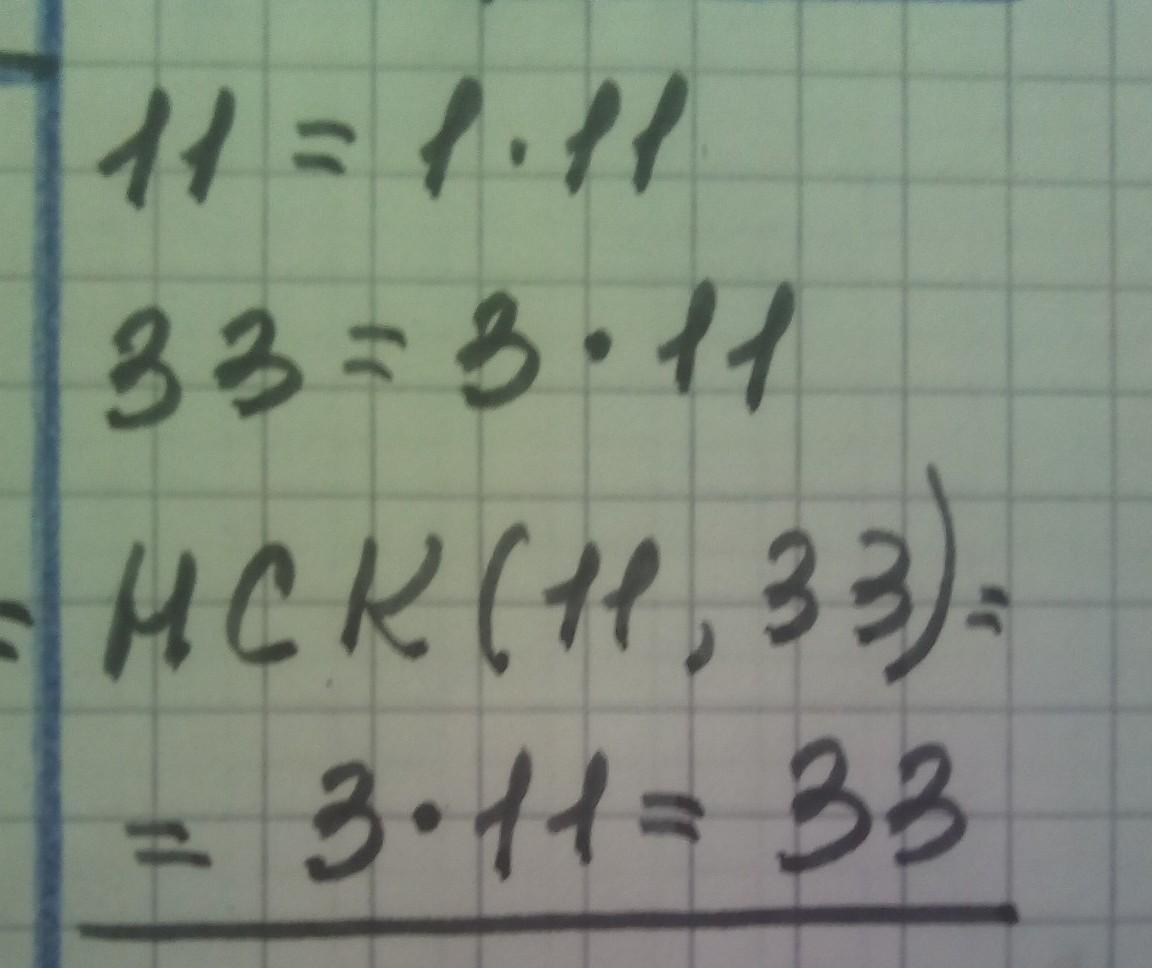 11 = 1 · 11
33 = 3 · 11
= НСК (11, 33) =
= 3 · 11 = 33